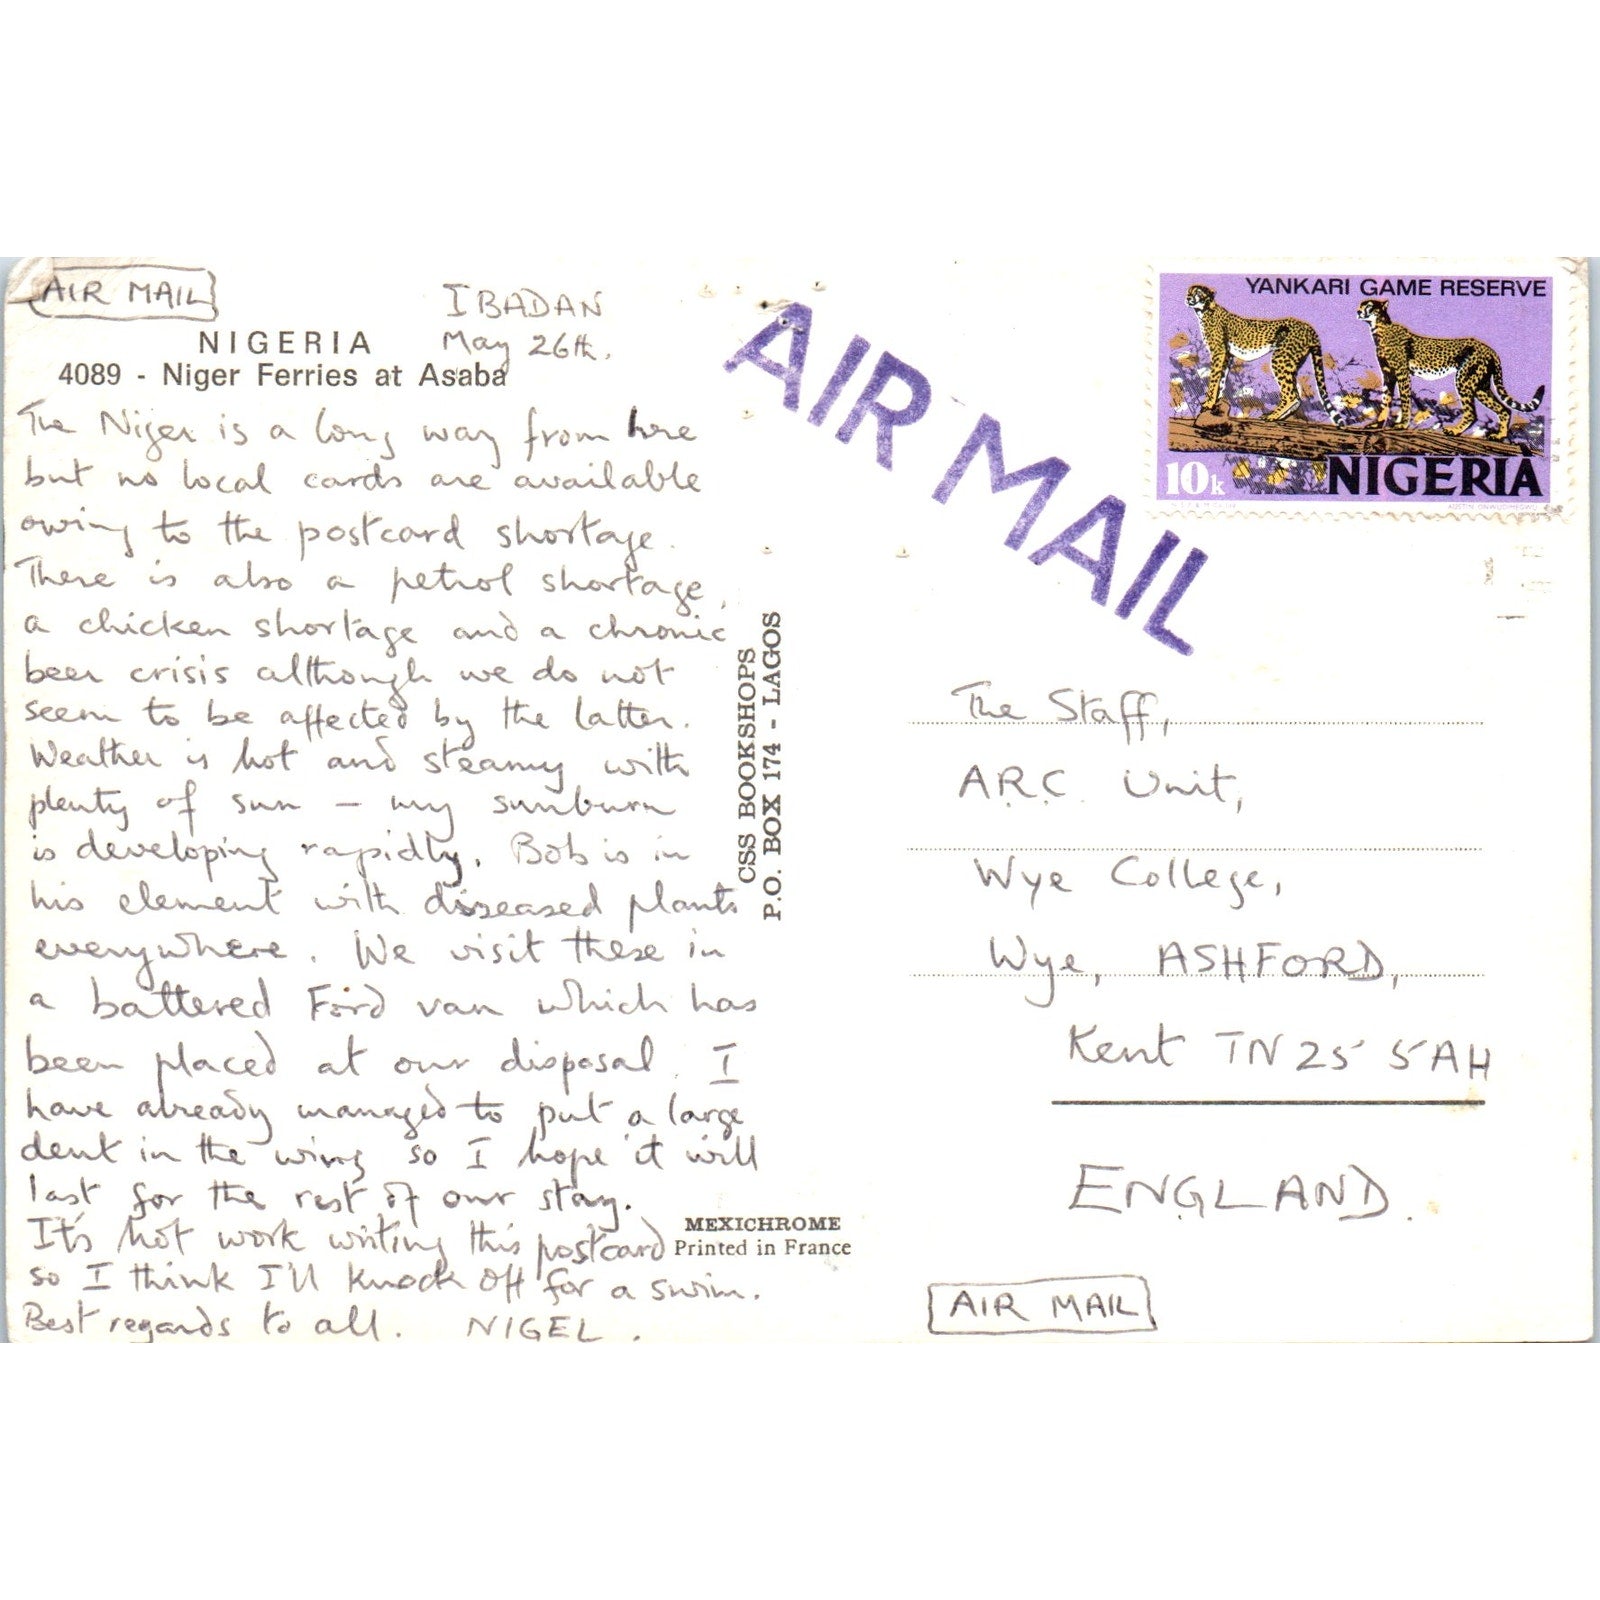 AIR MAIL
IBADAN
May 26th.
NIGERIA
4089 - Niger Ferries at Asaba
The Niger is a long way from here
but no local cards are available
owing to the postcard shortage.
There is also a petrol shortage,
a chicken shortage and a chronic
beer crisis although we do not
seem to be affected by the latter.
Weather is hot and steamy with
plenty of sun - my sunburn
is developing rapidly. Bob is in
his element with diseased plants
everywhere. We visit these in
a battered Ford van which has
been placed at our disposal. I
have already managed to put a large
dent in the wing so I hope it will
last for the rest of our stay.
It's hot work writing this postcard
so I think I'll knock off for a swim.
Best regards to all. NIGEL.
CSS BOOKSHOPS
P.O. BOX 174 - LAGOS
MEXICHROME
Printed in France
AIR MAIL
YANKARI GAME RESERVE
10k NIGERIA
The Staff,
A.R.C. Unit,
Wye College,
Wye, ASHFORD,
Kent TN25 5AH
ENGLAND.
AIR MAIL